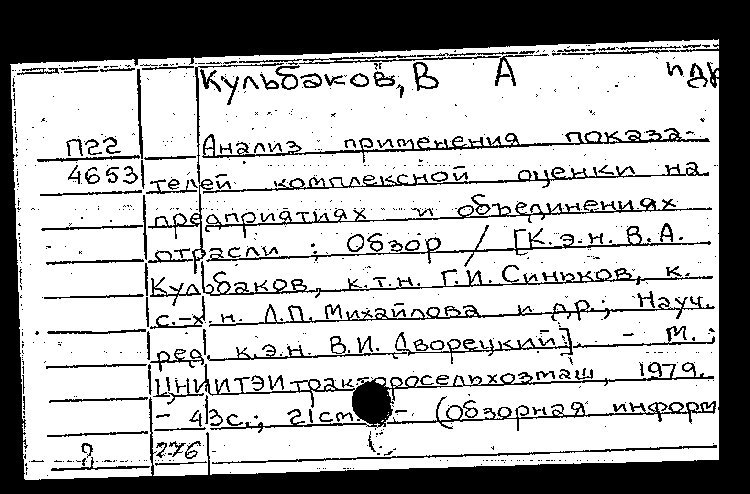 Кульбаков, В А и др
П22 Анализ применения показа-
4653 телей комплексной оценки на
предприятиях и объединениях
отрасли : Обзор / [К.э.н. В.А.
Кульбаков, к.т.н. Г.И. Синьков, к.
с.-х.н. Л.П. Михайлова и др.; Науч.
ред. к.э.н. В.И. Дворецкий]. - М.:
ЦНИИТЭИтракторосельхозмаш, 1979.
- 43с.; 21см. - (Обзорная информ
8 276